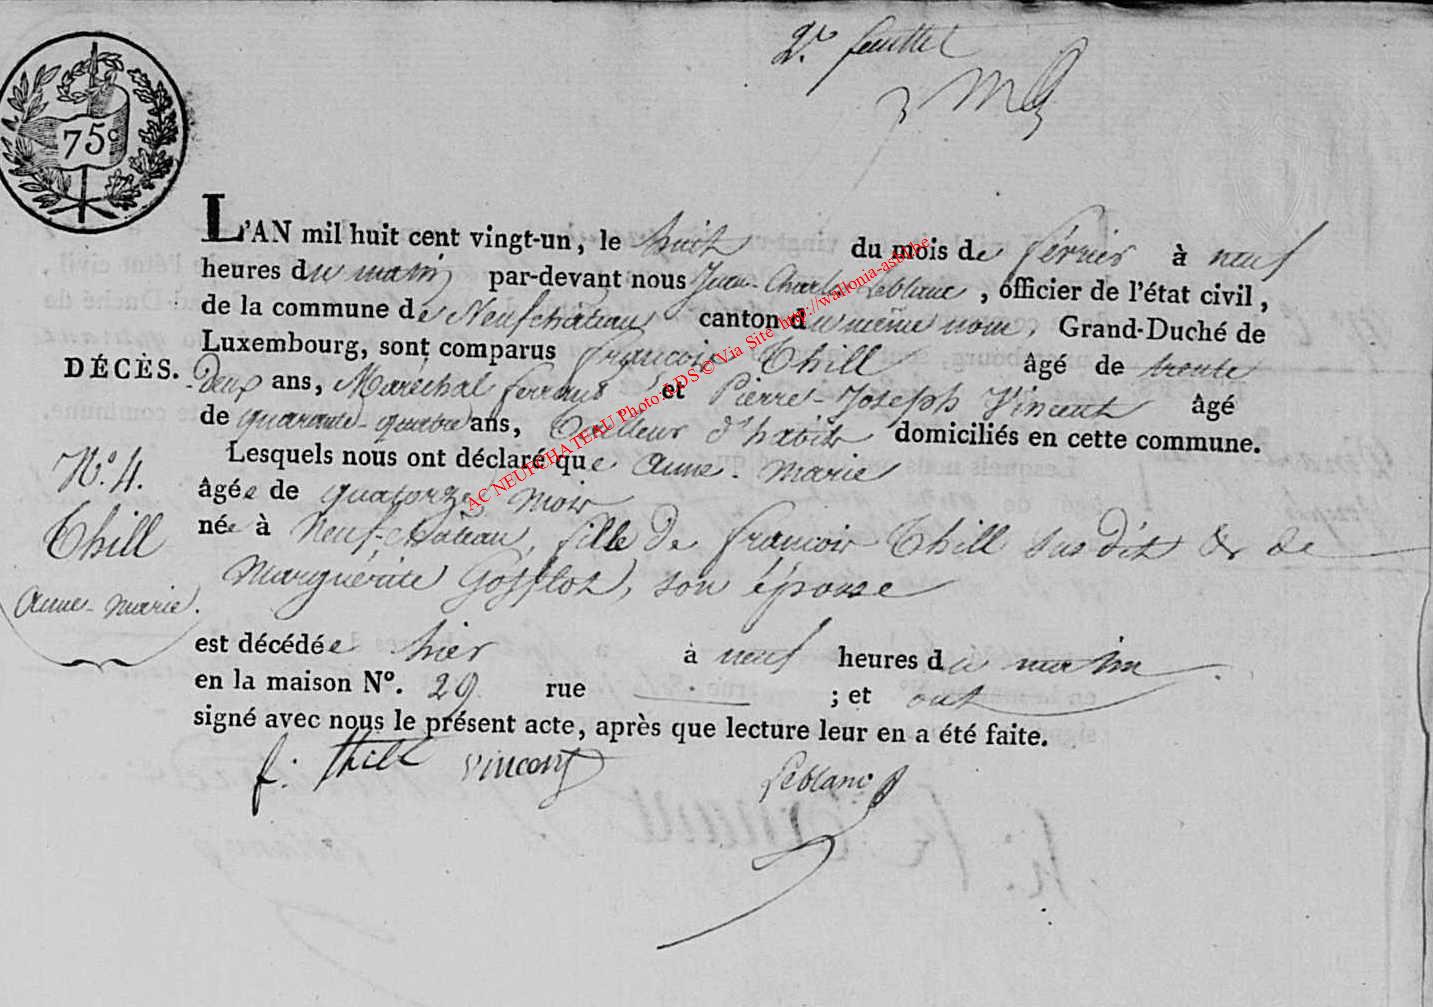 2.e feuillet
75c
L'AN mil huit cent vingt-un, le huit du mois de février à neuf
heures du matin par-devant nous Jean-Charles Leblanc, officier de l'état civil,
de la commune de Neufchâteau, canton du même nom, Grand-Duché de
Luxembourg, sont comparus François Thill âgé de trente
DÉCÈS.
deux ans, Maréchal ferrant et Pierre-Joseph Vincent âgé
de quarante-quatre ans, Tailleur d'habits domiciliés en cette commune.
Lesquels nous ont déclaré que Anne-Marie
N.° 4.
âgée de quatorze mois
Thill
née à Neufchâteau, fille de François Thill susdit & de
Anne-Marie.
Marguérite, son épouse
est décédée hier à neuf heures du matin
en la maison N°. 29 rue ; et ont
signé avec nous le présent acte, après que lecture leur en a été faite.
f. thill vincent Leblanc
AC NEUFCHATEAU Photo LDS © Via Site http://wallonia-asbl.be